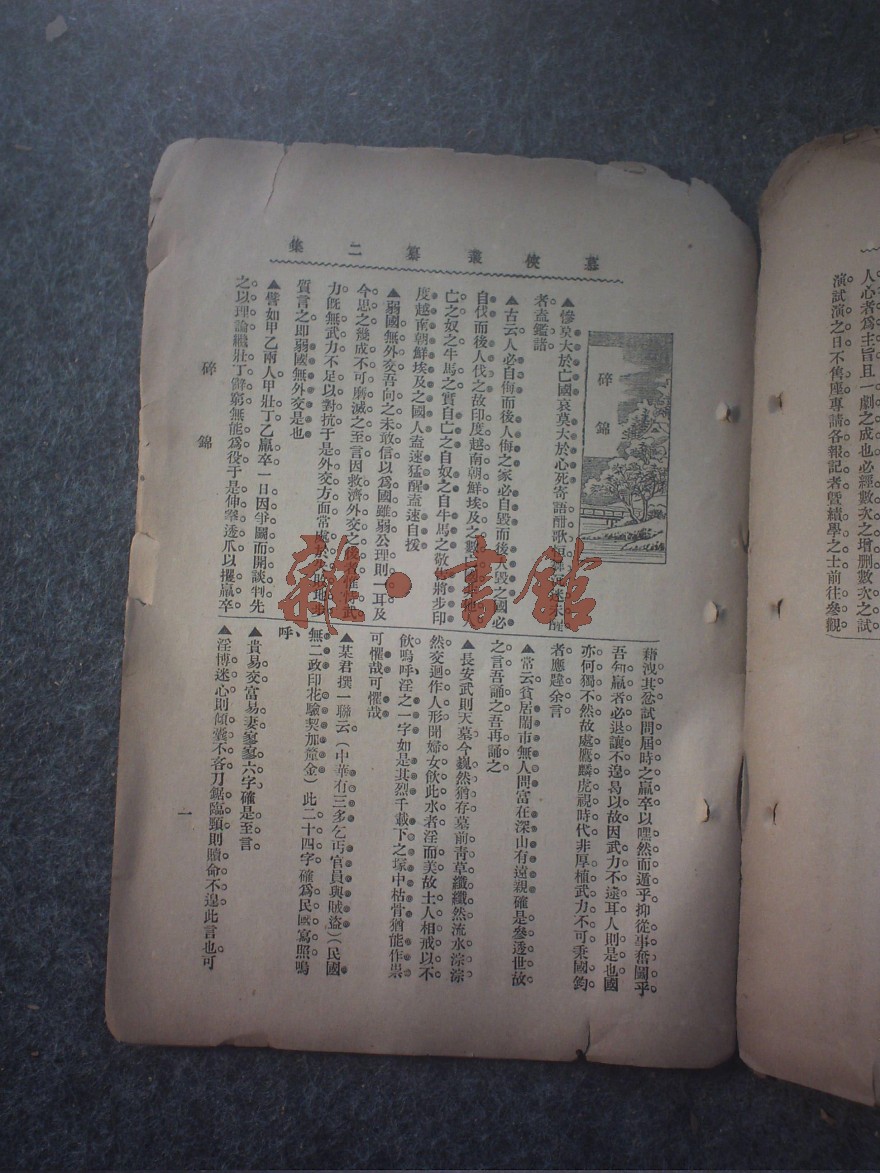 人心者爲主旨且一劇之成也必經數次之增删數次之試
演試演之日不售座專請各報記者曁績學之士前往參觀
慕俠叢纂二集
碎錦
▲慘莫大於亡國哀莫大於心死寄語酣歌
者盍鑑諸
▲古云人必自侮而後人侮之家必自毀而後人毀之國必
自伐而後人伐之故印度越南朝鮮埃及之
亡之奴之牛馬之實自亡之自奴之自牛馬之敬告將步印
度越南朝鮮埃及之國人盍速猛醒盍速自拔
▲弱國無外交吾向之未敢信以爲國雖弱公理則一耳及
今思之幾成不可磨滅之至言因救濟外交之
力旣無武力不足以對抗于是外交方面常處於
質言之即弱國無外交是也
▲譬如甲乙兩人甲壯丁乙羸卒一日因爭鬭而開談判先
之以理論繼壯丁辭窮無能爲役于是伸拳透爪以攫羸卒
藉洩其忿試問屆時之羸卒以嘿然而遁乎抑從事奮鬭乎
吾知羸者必退讓不遑曷以故因武力不逮耳人則是也國
亦何獨不然故處鷹麟虎視時代非厚植武力不可秉國鈞
者應韙余言
▲常云貧居鬧市無人問富在深山有遠親確是參透世故
之言吾誦之吾再誦之
▲長安武則天墓今巍然猶存墓前靑草纖纖然流水淙淙
然交迴作人形聞婦女飲此水者淫而美故土人相戒以不
飲嗚呼淫之一字如是其烈千載下之塚中枯骨猶能作祟
可懼哉可懼哉
▲某君撰一聯云（中華有三多乞丐官員與賊盜）（民國
無二政印花驗契加釐金）此二十四字確爲民國寫照嗚
呼、
▲貴易交富易妻寥寥六字確是至言
▲淫博迷心則傾囊不吝刀鋸臨頸則贖命不遑此言也可
碎錦
一
雜·書館